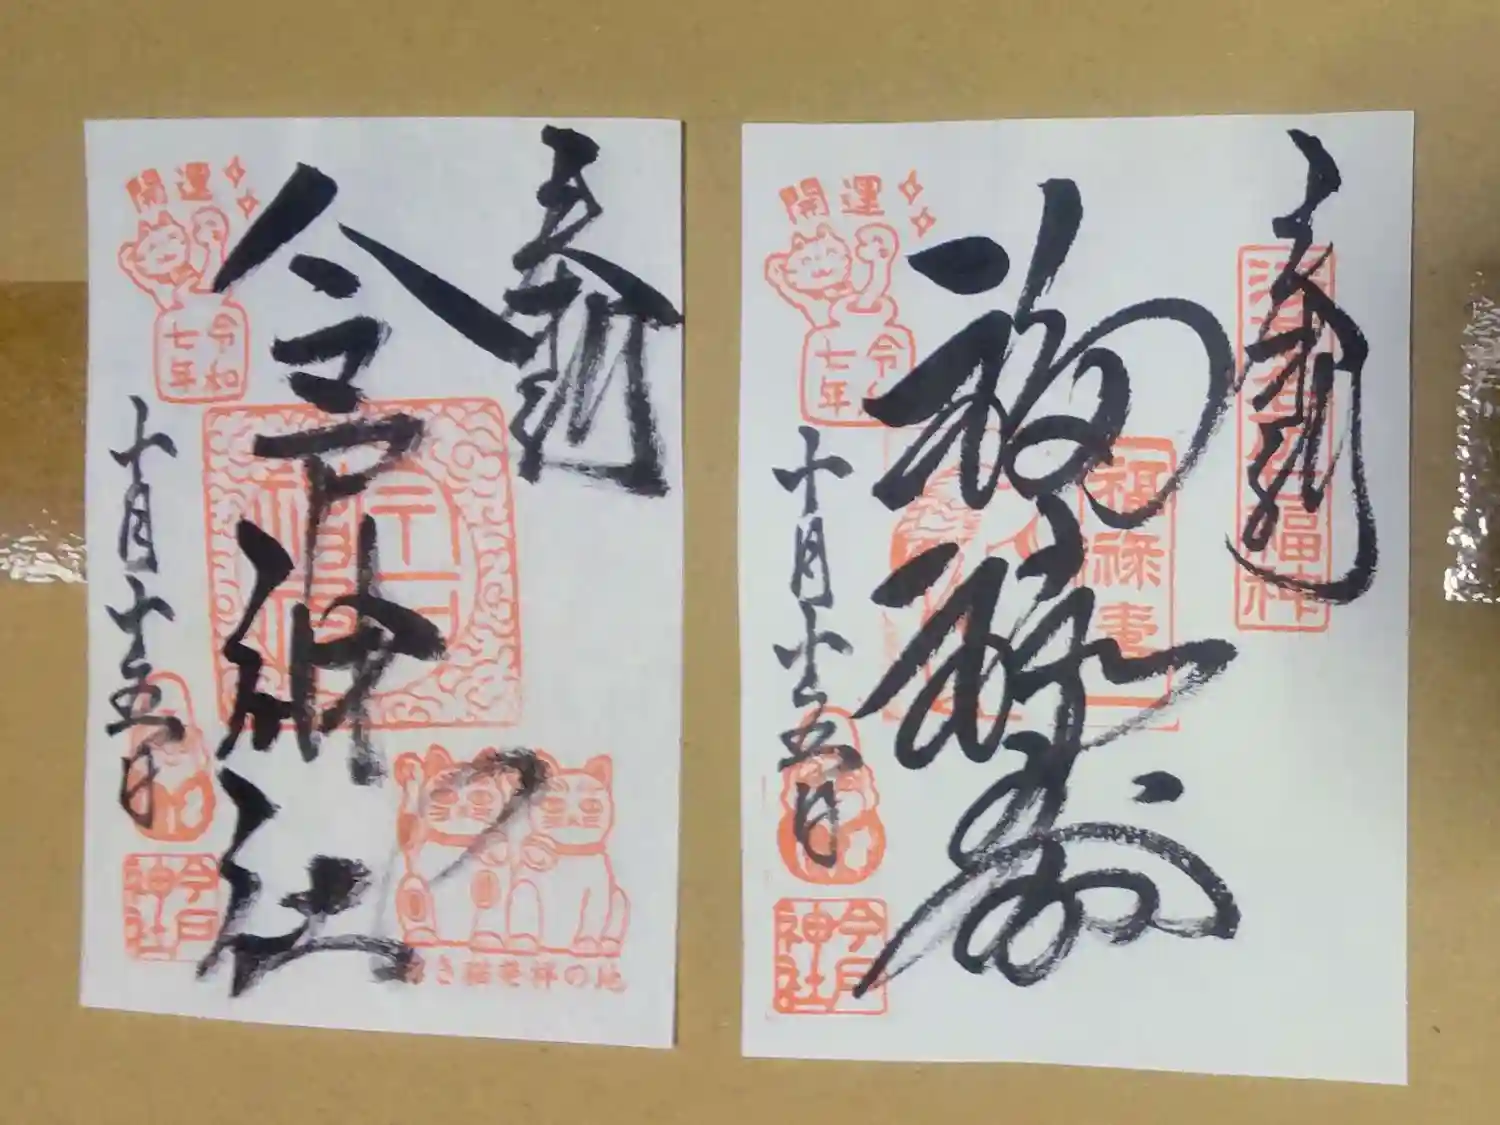 奉拝
今戸神社
開運
令和
七年
十月十五日
今戸
神社
招き猫発祥の地
奉拝
浅草名所七福神
福禄寿
福禄寿
開運
令和
七年
十月十五日
今戸
神社